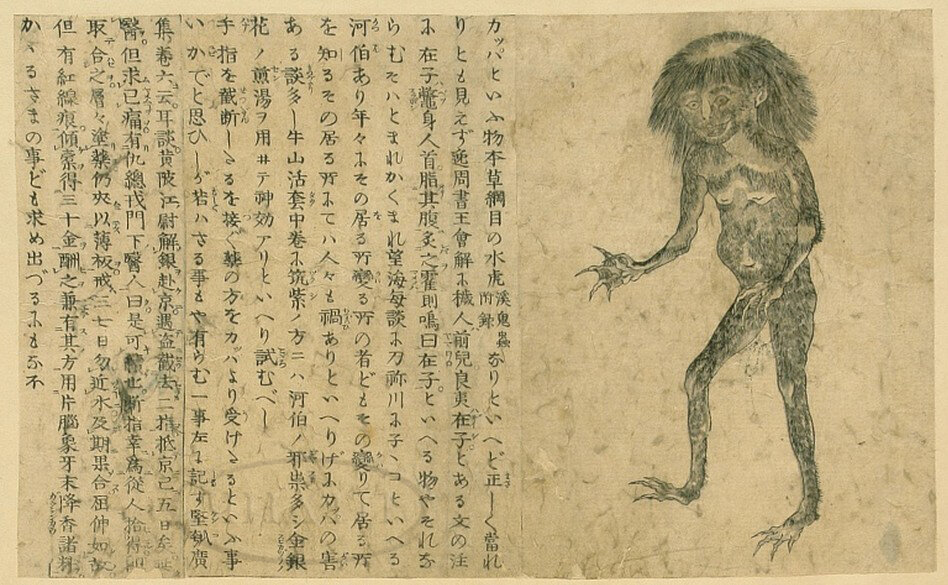 カッパといふ物本草綱目の水虎溪鬼蟲附録なりといへど正しく當れ
りとも見えず逸周書王會解に穢人前兒良夷在子とある文の注
に在子鼈身人首脂其腹炙之霍則鳴曰在子といへる物やそれな
らむそハとまれかくまれ望海毎談に刀祢川に子ヽコといへる
河伯あり年々にその居る所變る所の者どもその變りて居る所
を知るその居る所にてハ人々も禍ありといへりげにカッパの害
ある談多し牛山活套中卷に筑紫ノ方ニハ河伯ノ邪祟多シ金銀
花ノ煎湯ヲ用ヰテ神効アリといへり試むべし
手指を截断しゝるを接ぐ藥の方をカッパより受けゝるといふ事
いかでと思ひしが若ハさる事もや有らむ一事左に記す堅瓠廣
集卷六云耳談黄陂江尉解銀赴京遇盗截去二指抵京已五日矣
醫但求已痛有仇總戎門下醫人曰是可續也断指幸爲從人拾得
取合之層々塗藥仍夾以薄板戒三七日勿近水及期果合屈伸如故
但有紅線痕傾橐得三十金酬之兼有其方用片腦象牙末降香諸料
かゝるさまの事ども求め出づるにもな不